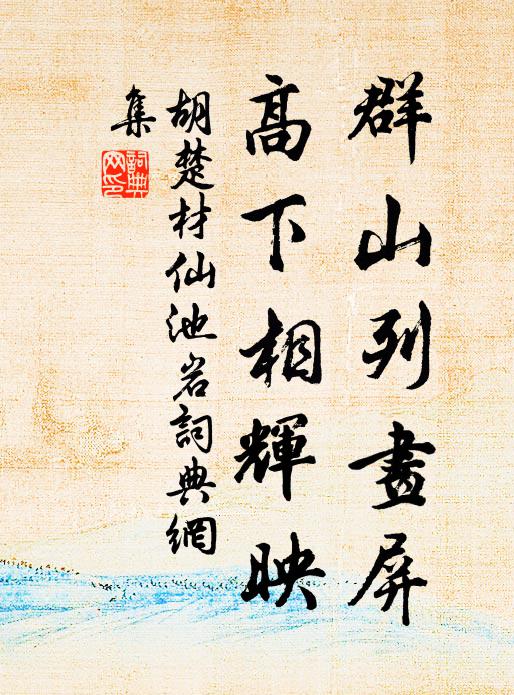 群山列畫屏
高下相輝映
胡楚材仙池岩詞典網
集
詞典
网印